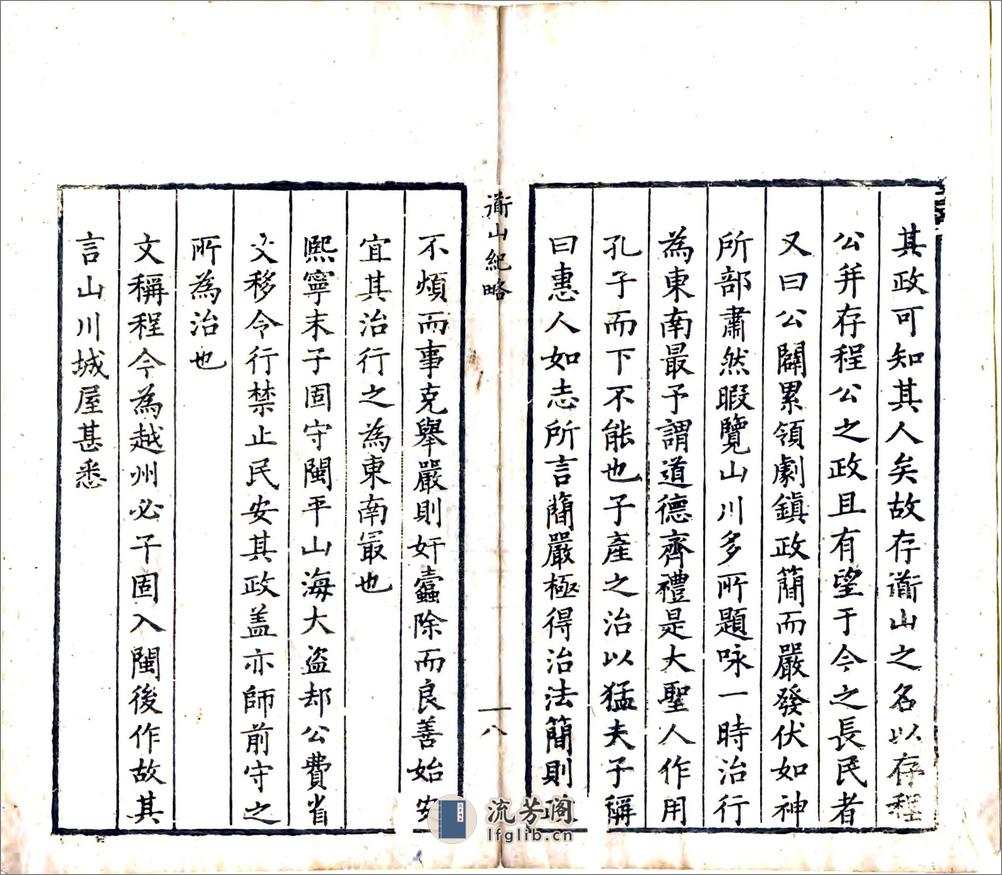 其政可知其人矣故存道山之名以存程
公并存程公之政且有望于今之長民者
又曰公闢累領劇鎮政簡而嚴發伏如神
所部肅然暇覽山川多所題咏一時治行
為東南最予謂道德齊禮是大聖人作用
孔子而下不能也子產之治以猛夫子稱
曰惠人如志所言簡嚴極得治法簡則
道山紀略
八
不煩而事克舉嚴則奸蠹除而良善始安
宜其治行之為東南最也
熙寧末子固守閩平山海大盜却公費省
文移令行禁止民安其政盖亦師前守之
所為治也
文稱程今為越州必子固入閩後作故其
言山川城屋甚悉
流芳阁
lfglib.com